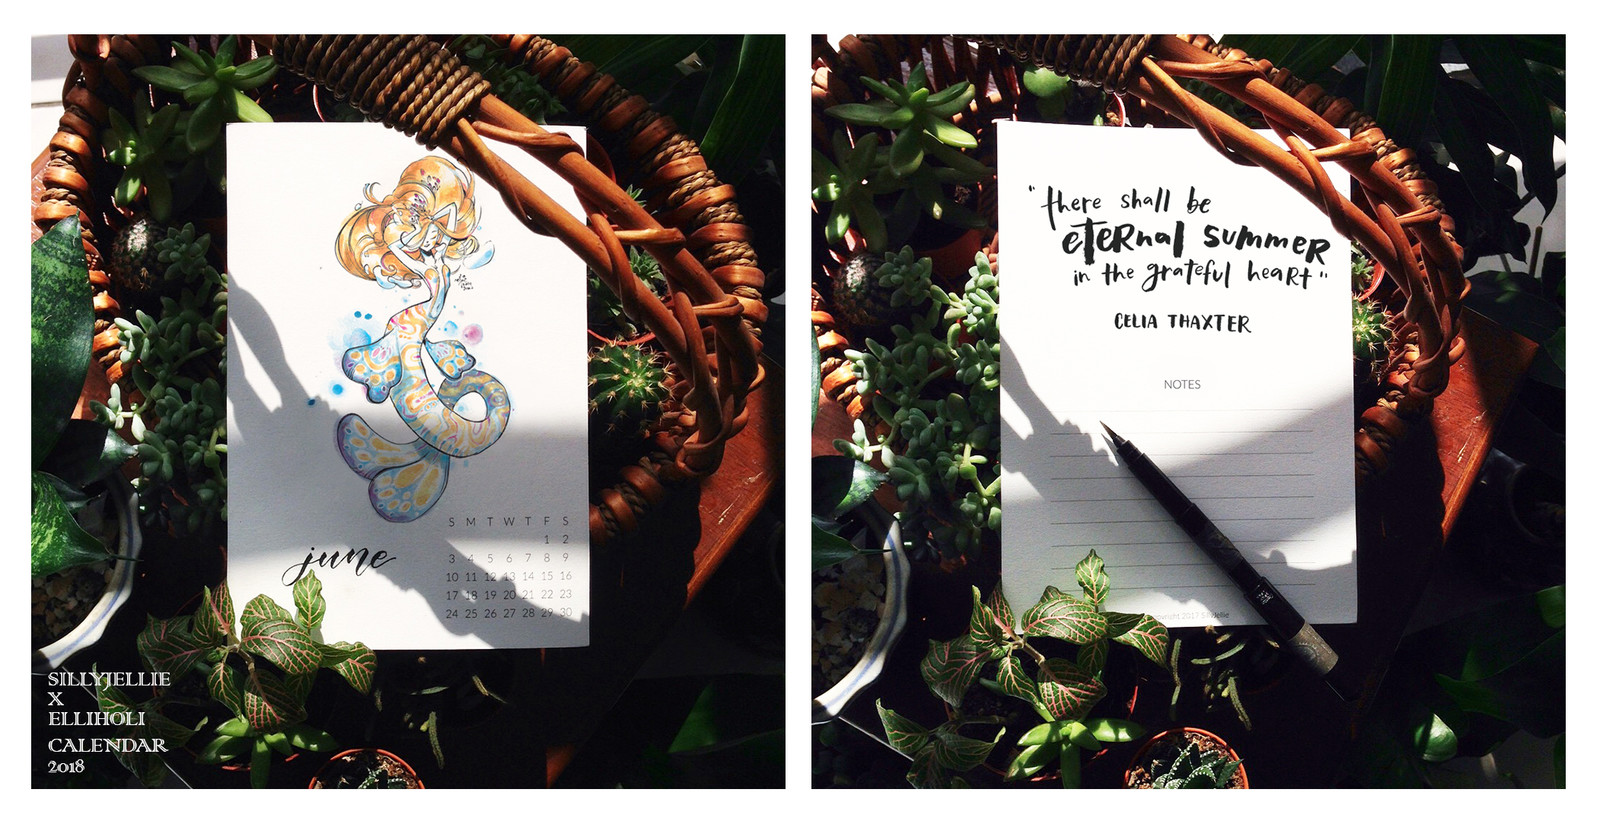 june
S M T W T F S
1 2
3 4 5 6 7 8 9
10 11 12 13 14 15 16
17 18 19 20 21 22 23
24 25 26 27 28 29 30
SILLYJELLIE
X
ELLIHOLI
CALENDAR
2018
"there shall be
eternal summer
in the grateful heart"
CELIA THAXTER
NOTES
2017 Sillyjellie